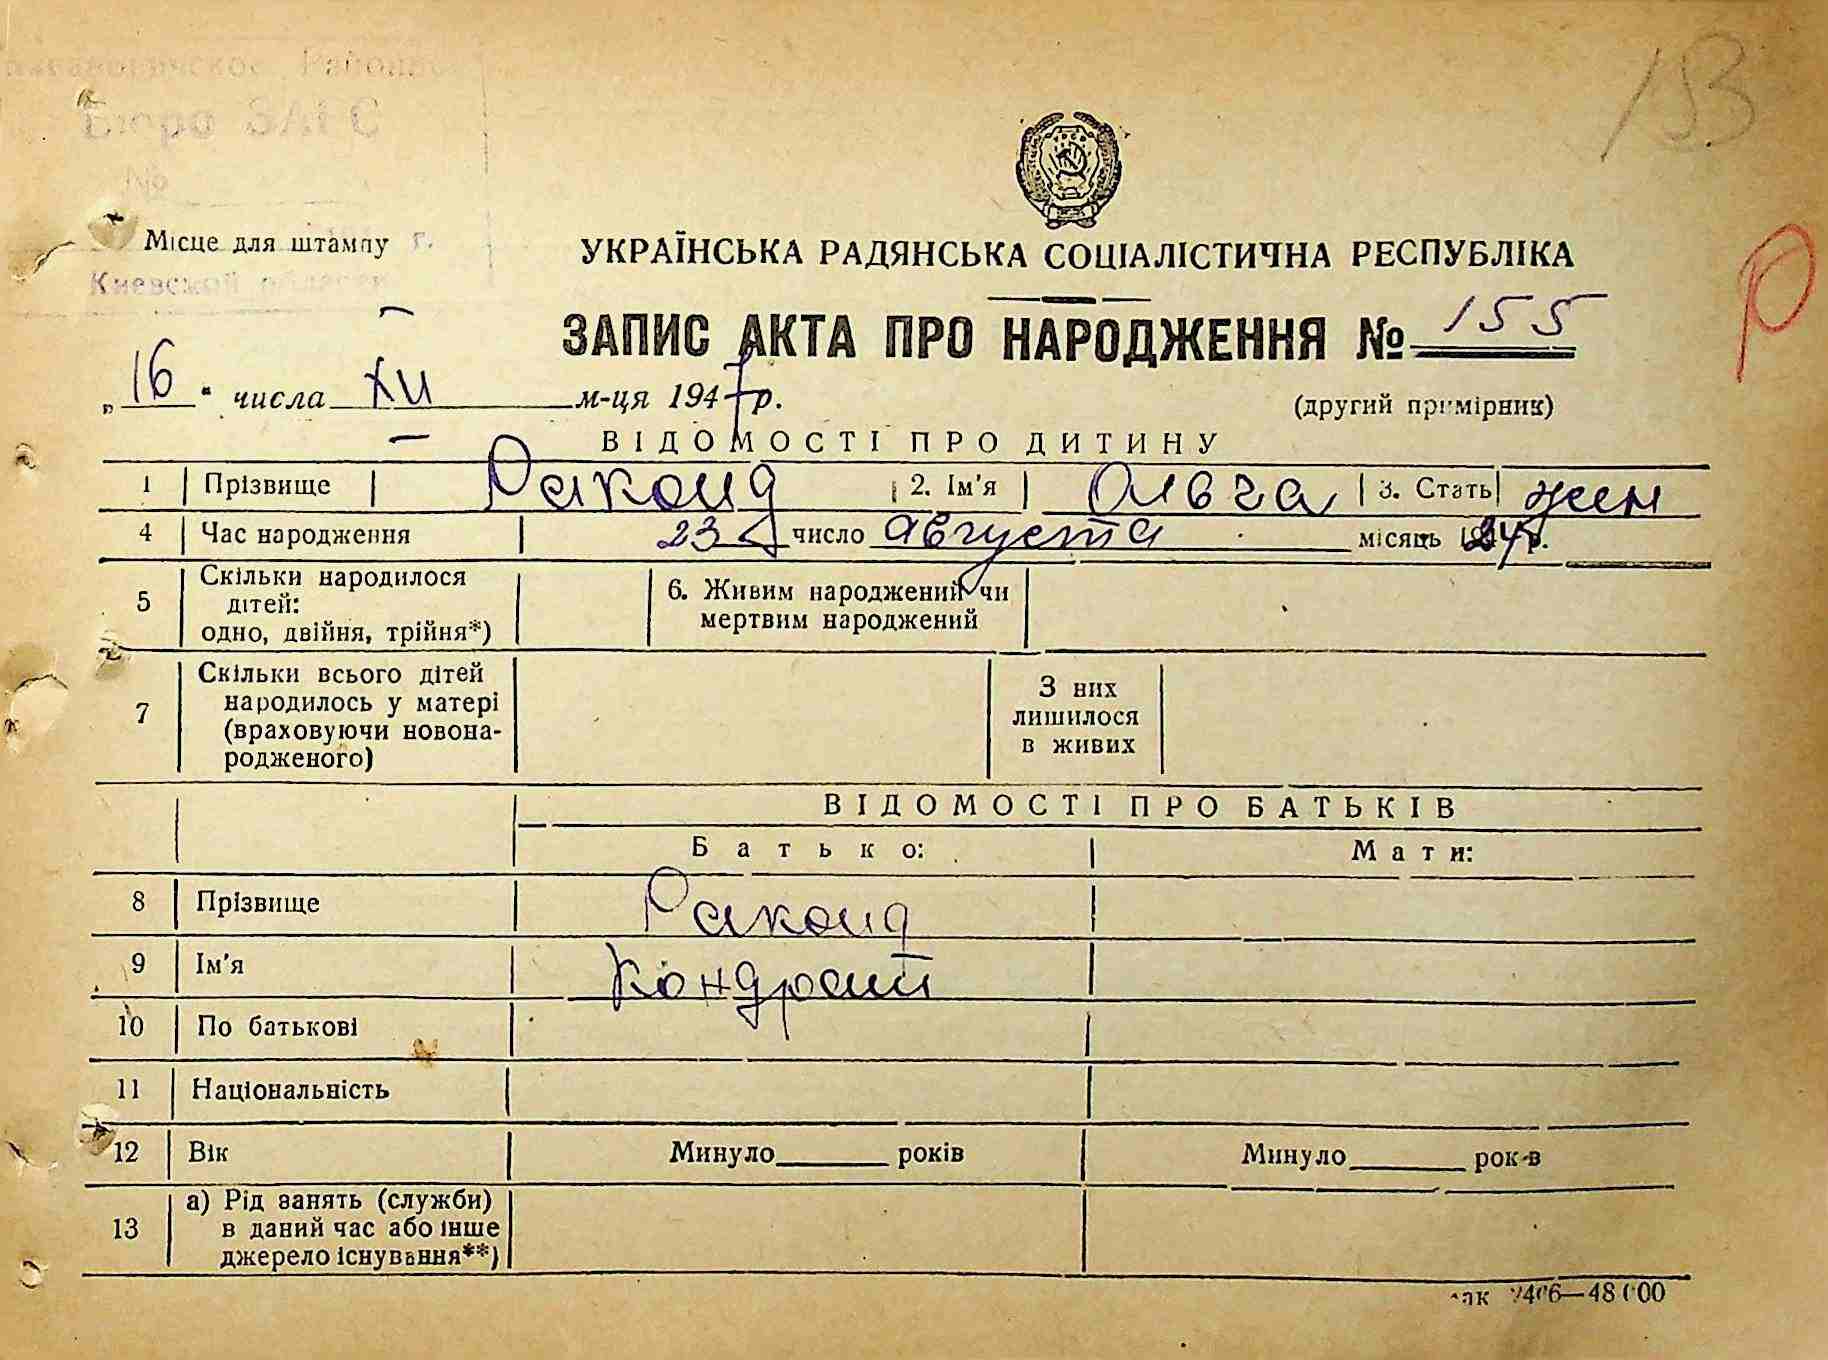 Бюро ЗАГС
№
Місце для штампу г.
Киевской области
153
УКРАЇНСЬКА РАДЯНСЬКА СОЦІАЛІСТИЧНА РЕСПУБЛІКА
Р
ЗАПИС АКТА ПРО НАРОДЖЕННЯ № 155
„16“ числа XII м-ця 1947 р.
(другий примірник)
ВІДОМОСТІ ПРО ДИТИНУ
1 Прізвище Ракоид 2. Ім'я Ольга 3. Стать жен
4 Час народження 23 число августа місяць р.
5 Скільки народилося дітей: одно, двійня, трійня*) 6. Живим народжений чи мертвим народжений
7 Скільки всього дітей народилось у матері (враховуючи новонародженого) З них лишилося в живих
ВІДОМОСТІ ПРО БАТЬКІВ
Батько: Мати:
8 Прізвище Ракоид
9 Ім'я Кондрат
10 По батькові
11 Національність
12 Вік Минуло років Минуло років
13 а) Рід занять (служби) в даний час або інше джерело існування**)